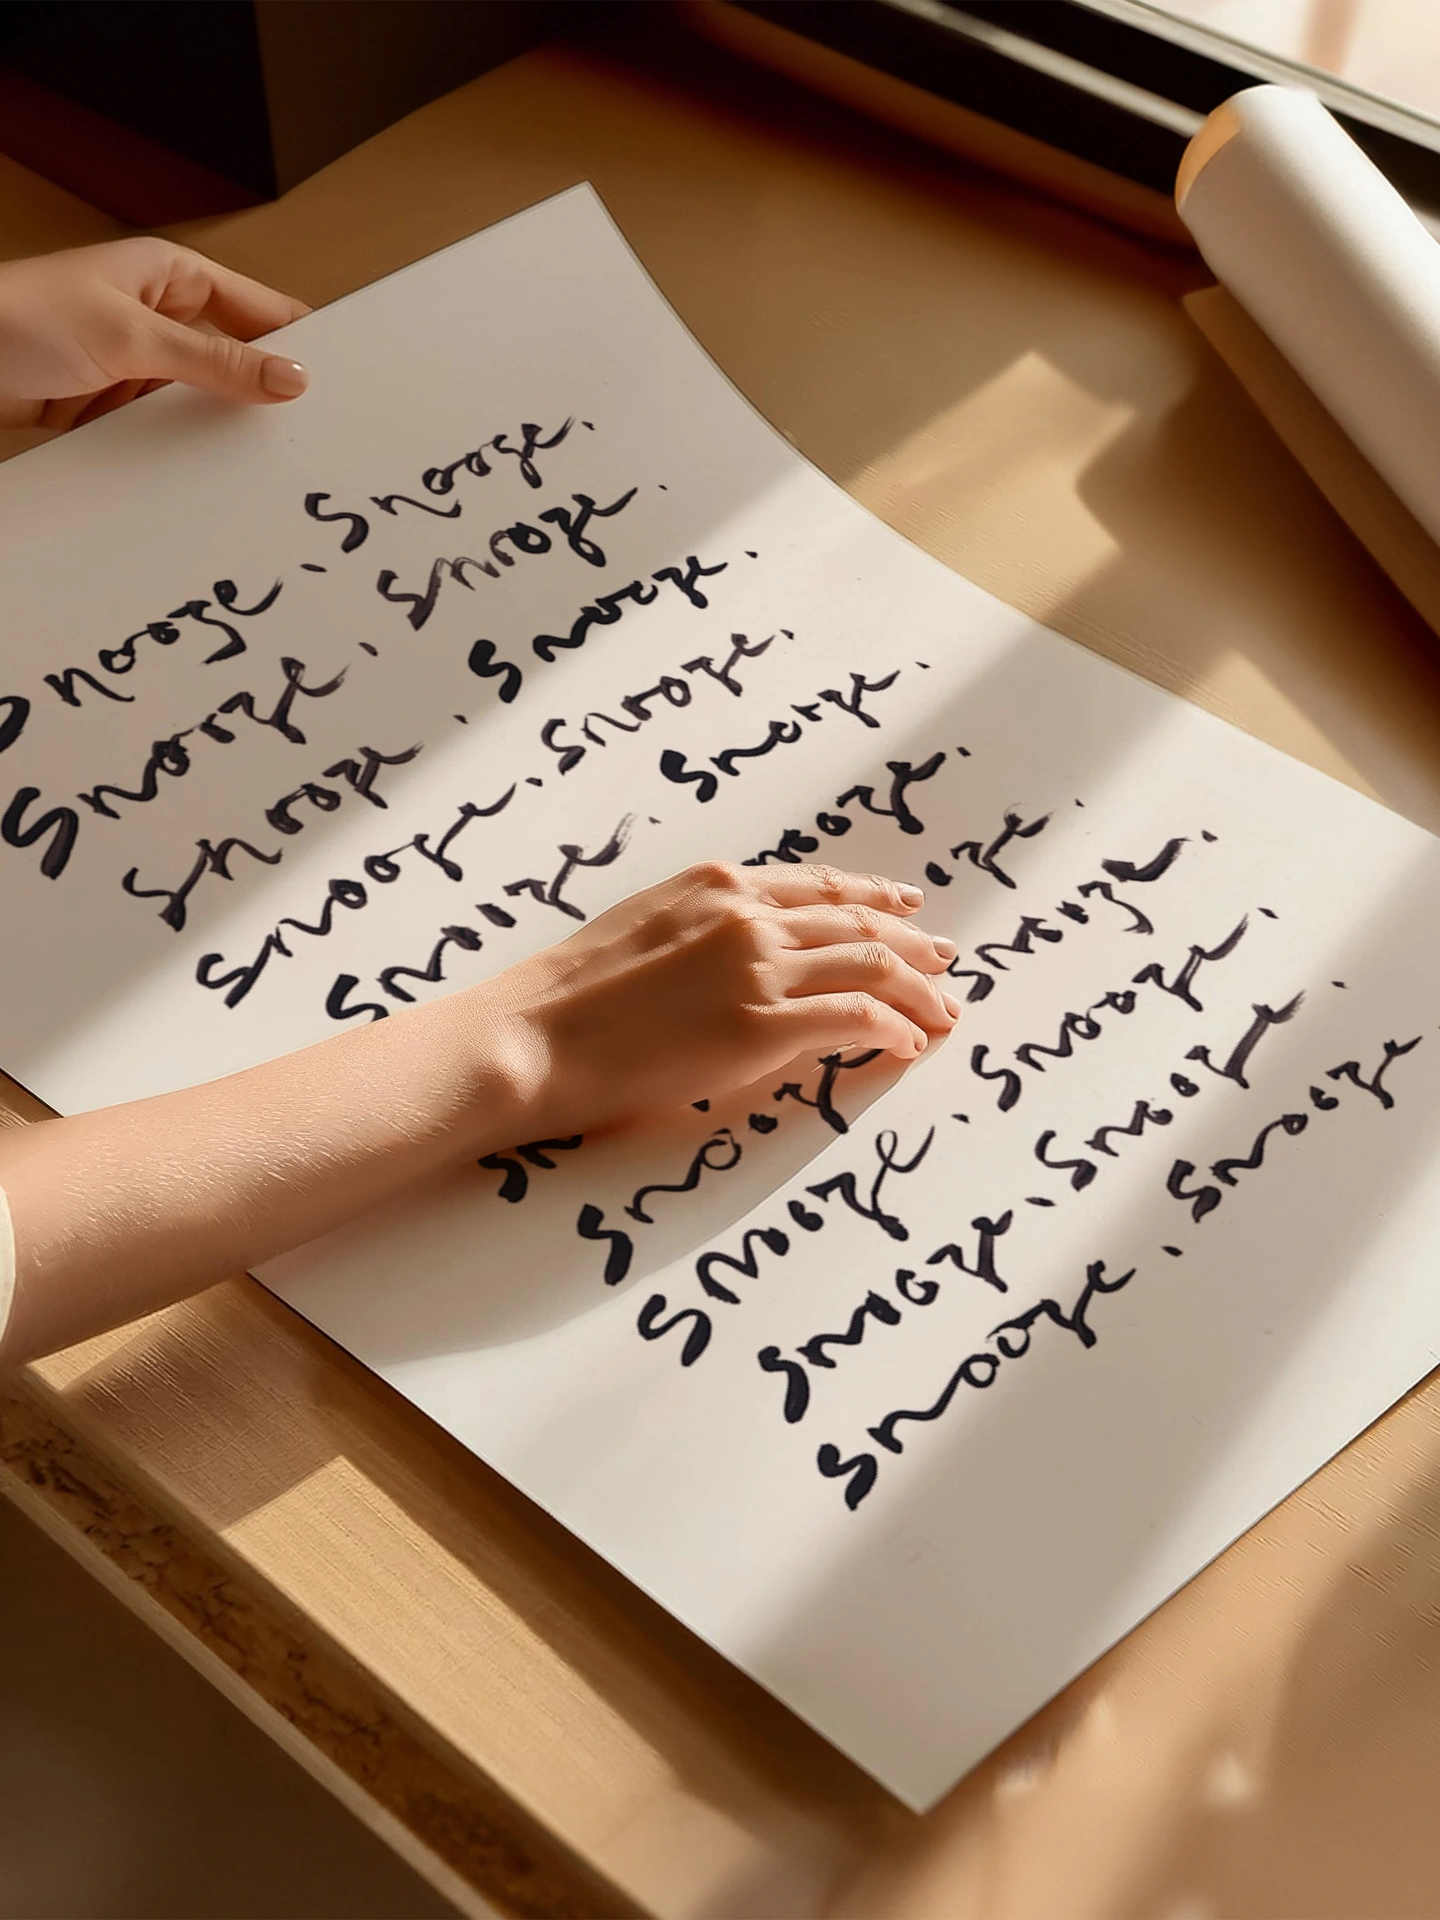 Snooze . Snooze .
Snooze . Snooze .
Snooze . Snooze .
Snooze . Snooze .
Snooze . Snooze .
Snooze Snooze .
Snooze . Snooze .
Snooze . Snooze .
Snooze . Snooze